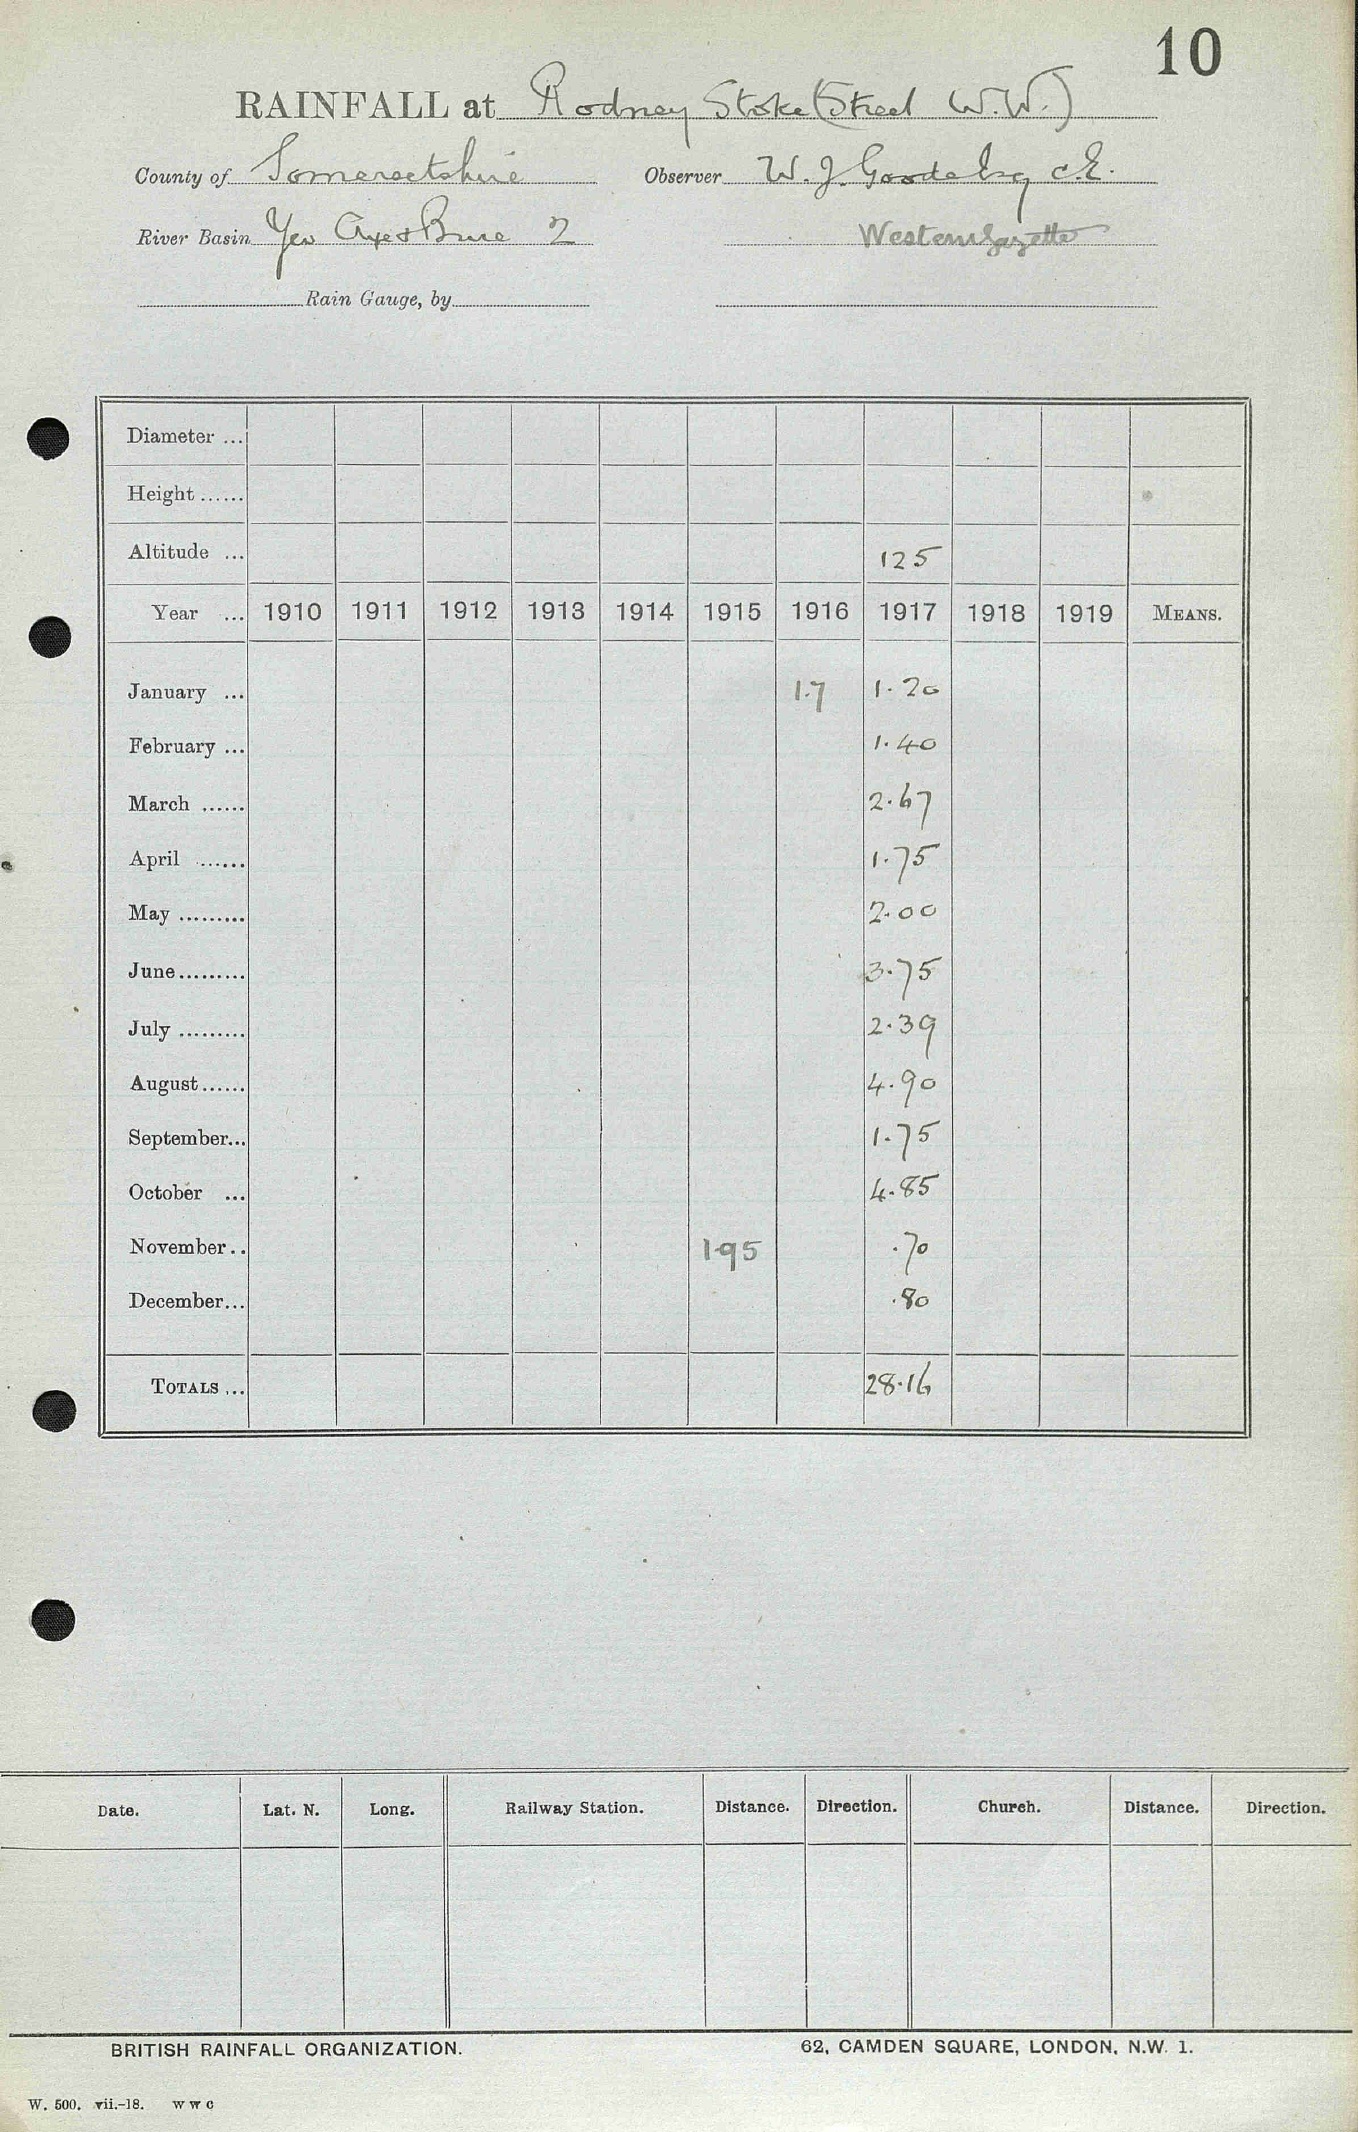 10
RAINFALL at Rodney Stoke (Street W.W.)
County of Somersetshire Observer W. J. C.E.
River Basin Yeo Axe & Brue 2 Western Gazette
Rain Gauge, by
Diameter ...
Height ......
Altitude ... 125
Year ... 1910 1911 1912 1913 1914 1915 1916 1917 1918 1919 MEANS.
January ... 1.7 1.20
February ... 1.40
March ...... 2.67
April ...... 1.75
May ......... 2.00
June ......... 3.75
July ......... 2.39
August ...... 4.90
September... 1.75
October ... 4.85
November .. 1.95 .70
December... .80
TOTALS ... 28.16
Date. Lat. N. Long. Railway Station. Distance. Direction. Church. Distance. Direction.
BRITISH RAINFALL ORGANIZATION. 62, CAMDEN SQUARE, LONDON, N.W. 1.
W. 500. vii.-18. W W C